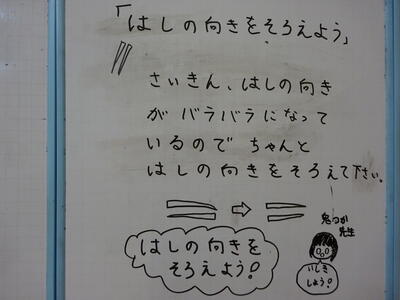 「はしの向きをそろえよう」
さいきん、はしの向き
がバラバラになって
いるのでちゃんと
はしの向きをそろえて下さい。
はしの向きを
そろえよう!
鬼つか
先生
いしき
しよう!